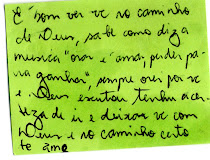 É bom ver vc no caminho
de Deus, sabe como diza
musica "orar é amar, perder pa
ra ganhar", sempre orei por vc
e Deus escutou tenho a cer
teza de ir e deixar vc com
Deus e no caminho certo
te amo